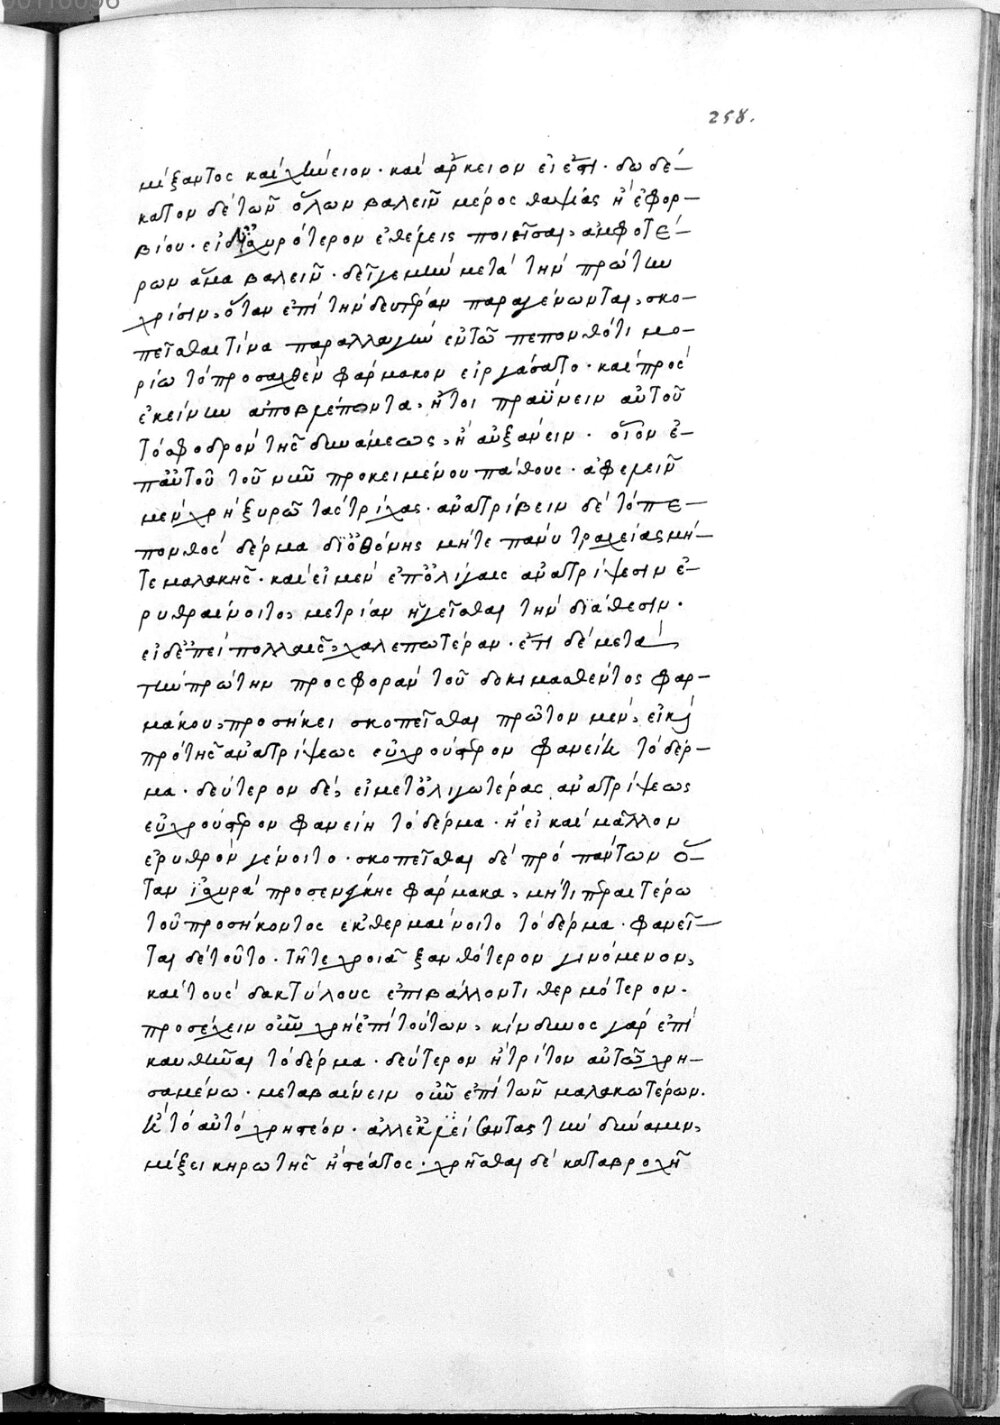 258.
μίξαντος καὶ χήνειον · καὶ ἄρκειον εἰ ἔτι · δωδέ-
κατον δὲ τῶν ὅλων βαλεῖν μέρος θαψίας ἢ ἐφορ-
βίου · εἰ δ' ἰσχυρότερον ἐθέλεις ποιῆσαι, ἀμφοτέ-
ρων ἅμα βαλεῖν · δεῖ γε μὴν μετὰ τὴν πρώτην
χρίσιν, ὅταν ἐπὶ τὴν δευτέραν παραγένωνται, σκο-
πεῖσθαι τίνα παραλλαγὴν ἐν τῷ πεπονθότι μο-
ρίῳ τὸ προσαχθὲν φάρμακον εἰργάσατο · καὶ πρὸς
ἐκείνην ἀποβλέποντα, ἤτοι πραΰνειν αὐτοῦ
τὸ σφοδρὸν τῆς δυνάμεως, ἢ αὐξάνειν · οἷον ἐ-
π' αὐτοῦ τοῦ νῦν προκειμένου πάθους · ἀφελεῖν
μὲν χρὴ ξυρῷ τὰς τρίχας · ἀνατρίβειν δὲ τὸ πε-
πονθὸς δέρμα δι' ὀθόνης μήτε πάνυ τραχείας μή-
τε μαλακῆς · καὶ εἰ μὲν ἐπ' ὀλίγαις ἀνατρίψεσιν ἐ-
ρυθραίνοιτο, μετρίαν ἡγεῖσθαι τὴν διάθεσιν ·
εἰ δ' ἐπὶ πολλαῖς, χαλεπωτέραν · ἔτι δὲ μετὰ
τὴν πρώτην προσφορὰν τοῦ δοκιμασθέντος φαρ-
μάκου, προσήκει σκοπεῖσθαι πρῶτον μὲν, εἰ καὶ
πρὸ τῆς ἀνατρίψεως εὐχρούστερον φανείη τὸ δέρ-
μα · δεύτερον δὲ, εἰ μετ' ὀλιγωτέρας ἀνατρίψεως
εὐχρούστερον φανείη τὸ δέρμα · ἢ εἰ καὶ μᾶλλον
ἐρυθρὸν γένοιτο · σκοπεῖσθαι δὲ πρὸ πάντων ὅ-
ταν ἰσχυρὰ προσενέγκῃς φάρμακα, μήτι περαιτέρω
τοῦ προσήκοντος ἐκθερμαίνοιτο τὸ δέρμα · φανεῖ-
ται δὲ τοῦτο · τῇ τε χροιᾷ ξανθότερον γινόμενον,
καὶ τοὺς δακτύλους ἐπιβάλλοντι θερμότερον ·
προσέχειν οὖν χρὴ ἐπὶ τούτων, κίνδυνος γὰρ ἐπι
καυθῆναι τὸ δέρμα · δεύτερον ἢ τρίτον αὐτῷ χρη-
σαμένῳ · μεταβαίνειν οὖν ἐπὶ τῶν μαλακωτέρων.
ἢ τὸ αὐτὸ χρηστέον · ἀλλ' ἐκλείοντας τὴν δύναμιν,
μίξει κηρωτῆς ἢ στέατος · χρῆσθαι δὲ καταβροχῇ